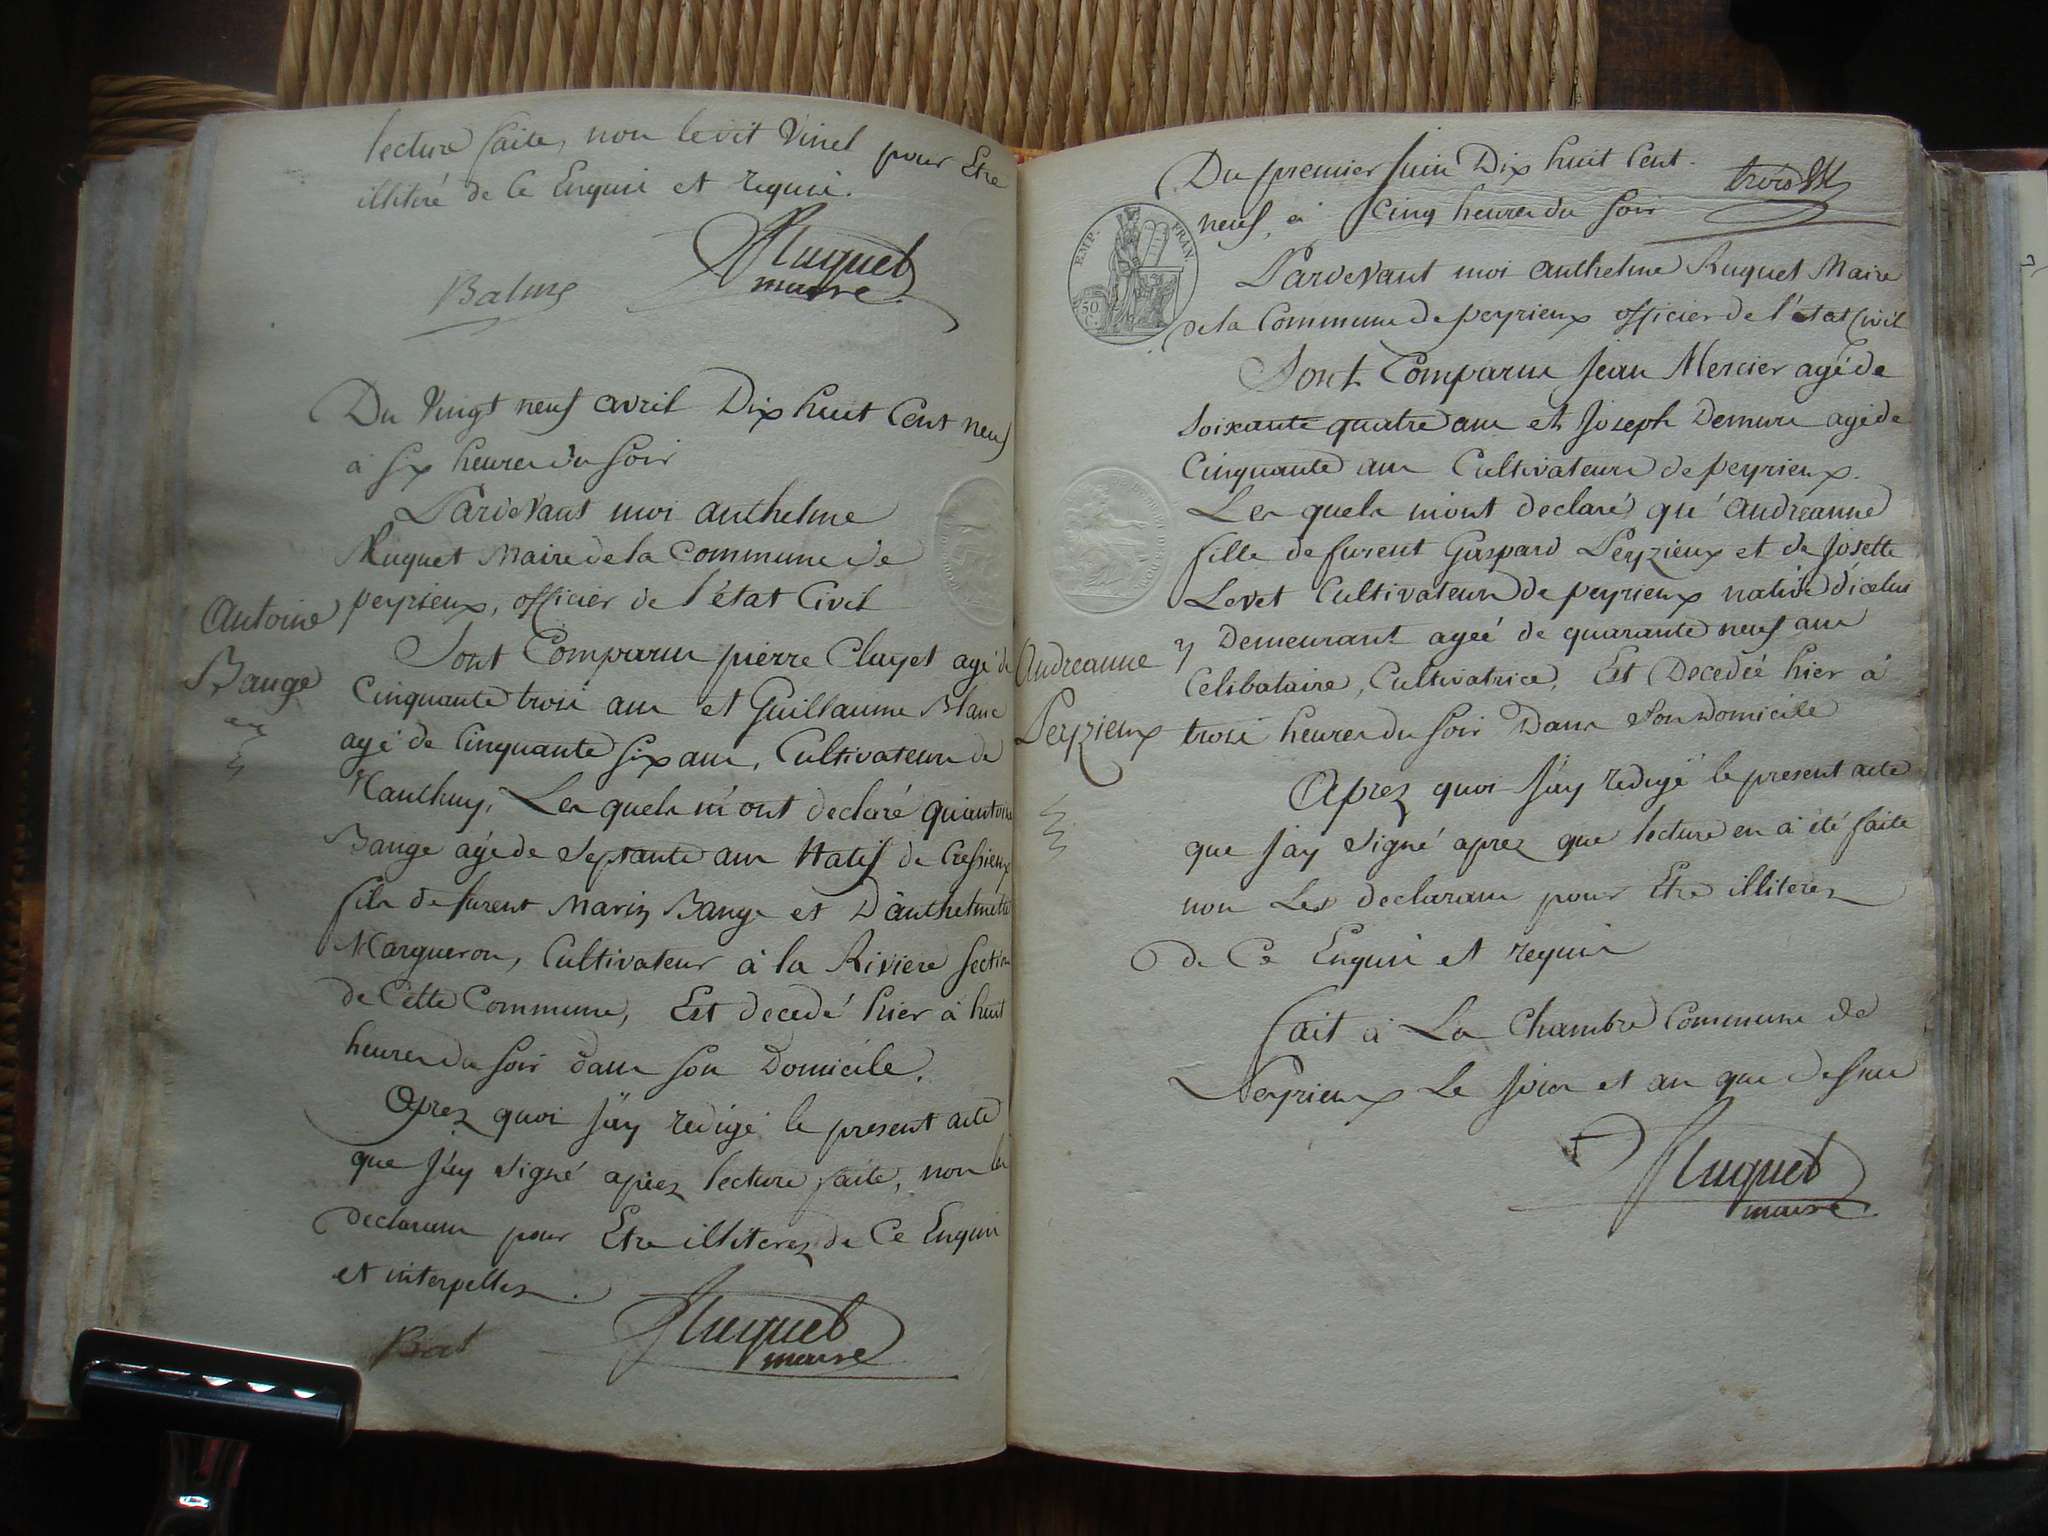 lecture faite, non ledit Vinel pour Etre
illitéré de Ce Enquis et requis.
Ruquet
maire
Du Vingt neuf avril Dix huit Cent neuf
à six heures du soir
Pardevant moi anthelme
Ruquet Maire de la Commune de
peyrieux, officier de l'état Civil
Antoine
Bange
Sont Comparus pierre Clayet agé de
Cinquante trois ans et Guillaume Blanc
agé de Cinquante six ans, Cultivateurs de
Les quels m'ont declaré qu'antoine
Bange agé de Septante ans Natif de Cressieux
fils de furent Marin Bange et D'anthelmette
Margueron, Cultivateur à la Riviere section
de Cette Commune, Est decedé hier à huit
heures du soir dans son Domicile.
Aprez quoi J'ay redigé le present acte
que J'ay signé aprez lecture faite, non les
declarans pour Etre illiterez de Ce Enquis
et interpellez.
Ruquet
maire
Du premier Juin Dix huit Cent
neuf, à Cinq heures du soir
trois
EMP. FRAN.
50
C.
Pardevant moi anthelme Ruquet Maire
de la Commune de peyrieux officier de l'état Civil
Sont Comparus Jean Mercier agé de
soixante quatre ans et Joseph Demure agé de
Cinquante ans Cultivateurs de peyrieux.
Les quels m'ont declaré qu'Andreanne
fille de furent Gaspard Peyzieux et de Josette
Levet Cultivateurs de peyrieux native d'icelui
y Demeurant agée de quarante neuf ans
Andreanne
Peyzieux
Celibataire, Cultivatrice, Est Decedée hier à
trois heures du soir Dans son Domicile
Aprez quoi J'ay redigé le present acte
que J'ay signé aprez que lecture en a été faite
non Les declarans pour Etre illiterez
de Ce Enquis et requis
fait à La Chambre Commune de
Peyrieux Le Jour et an que dessus
Ruquet
maire